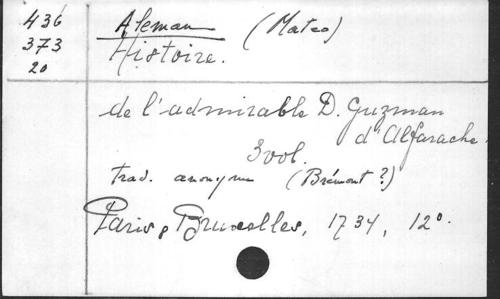 436
373
20
Aleman (Mateo)
Histoire.
de l'admirable D. Guzman
d'Alfarache.
3 vol.
trad. anonyme (Brémont ?)
Paris, Bruxelles, 1734, 12º.